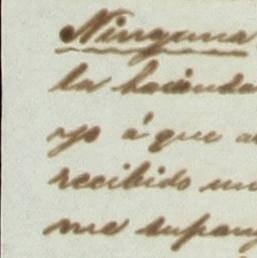 Ninguna
la hacienda
yo á que a
recibido un
me supong